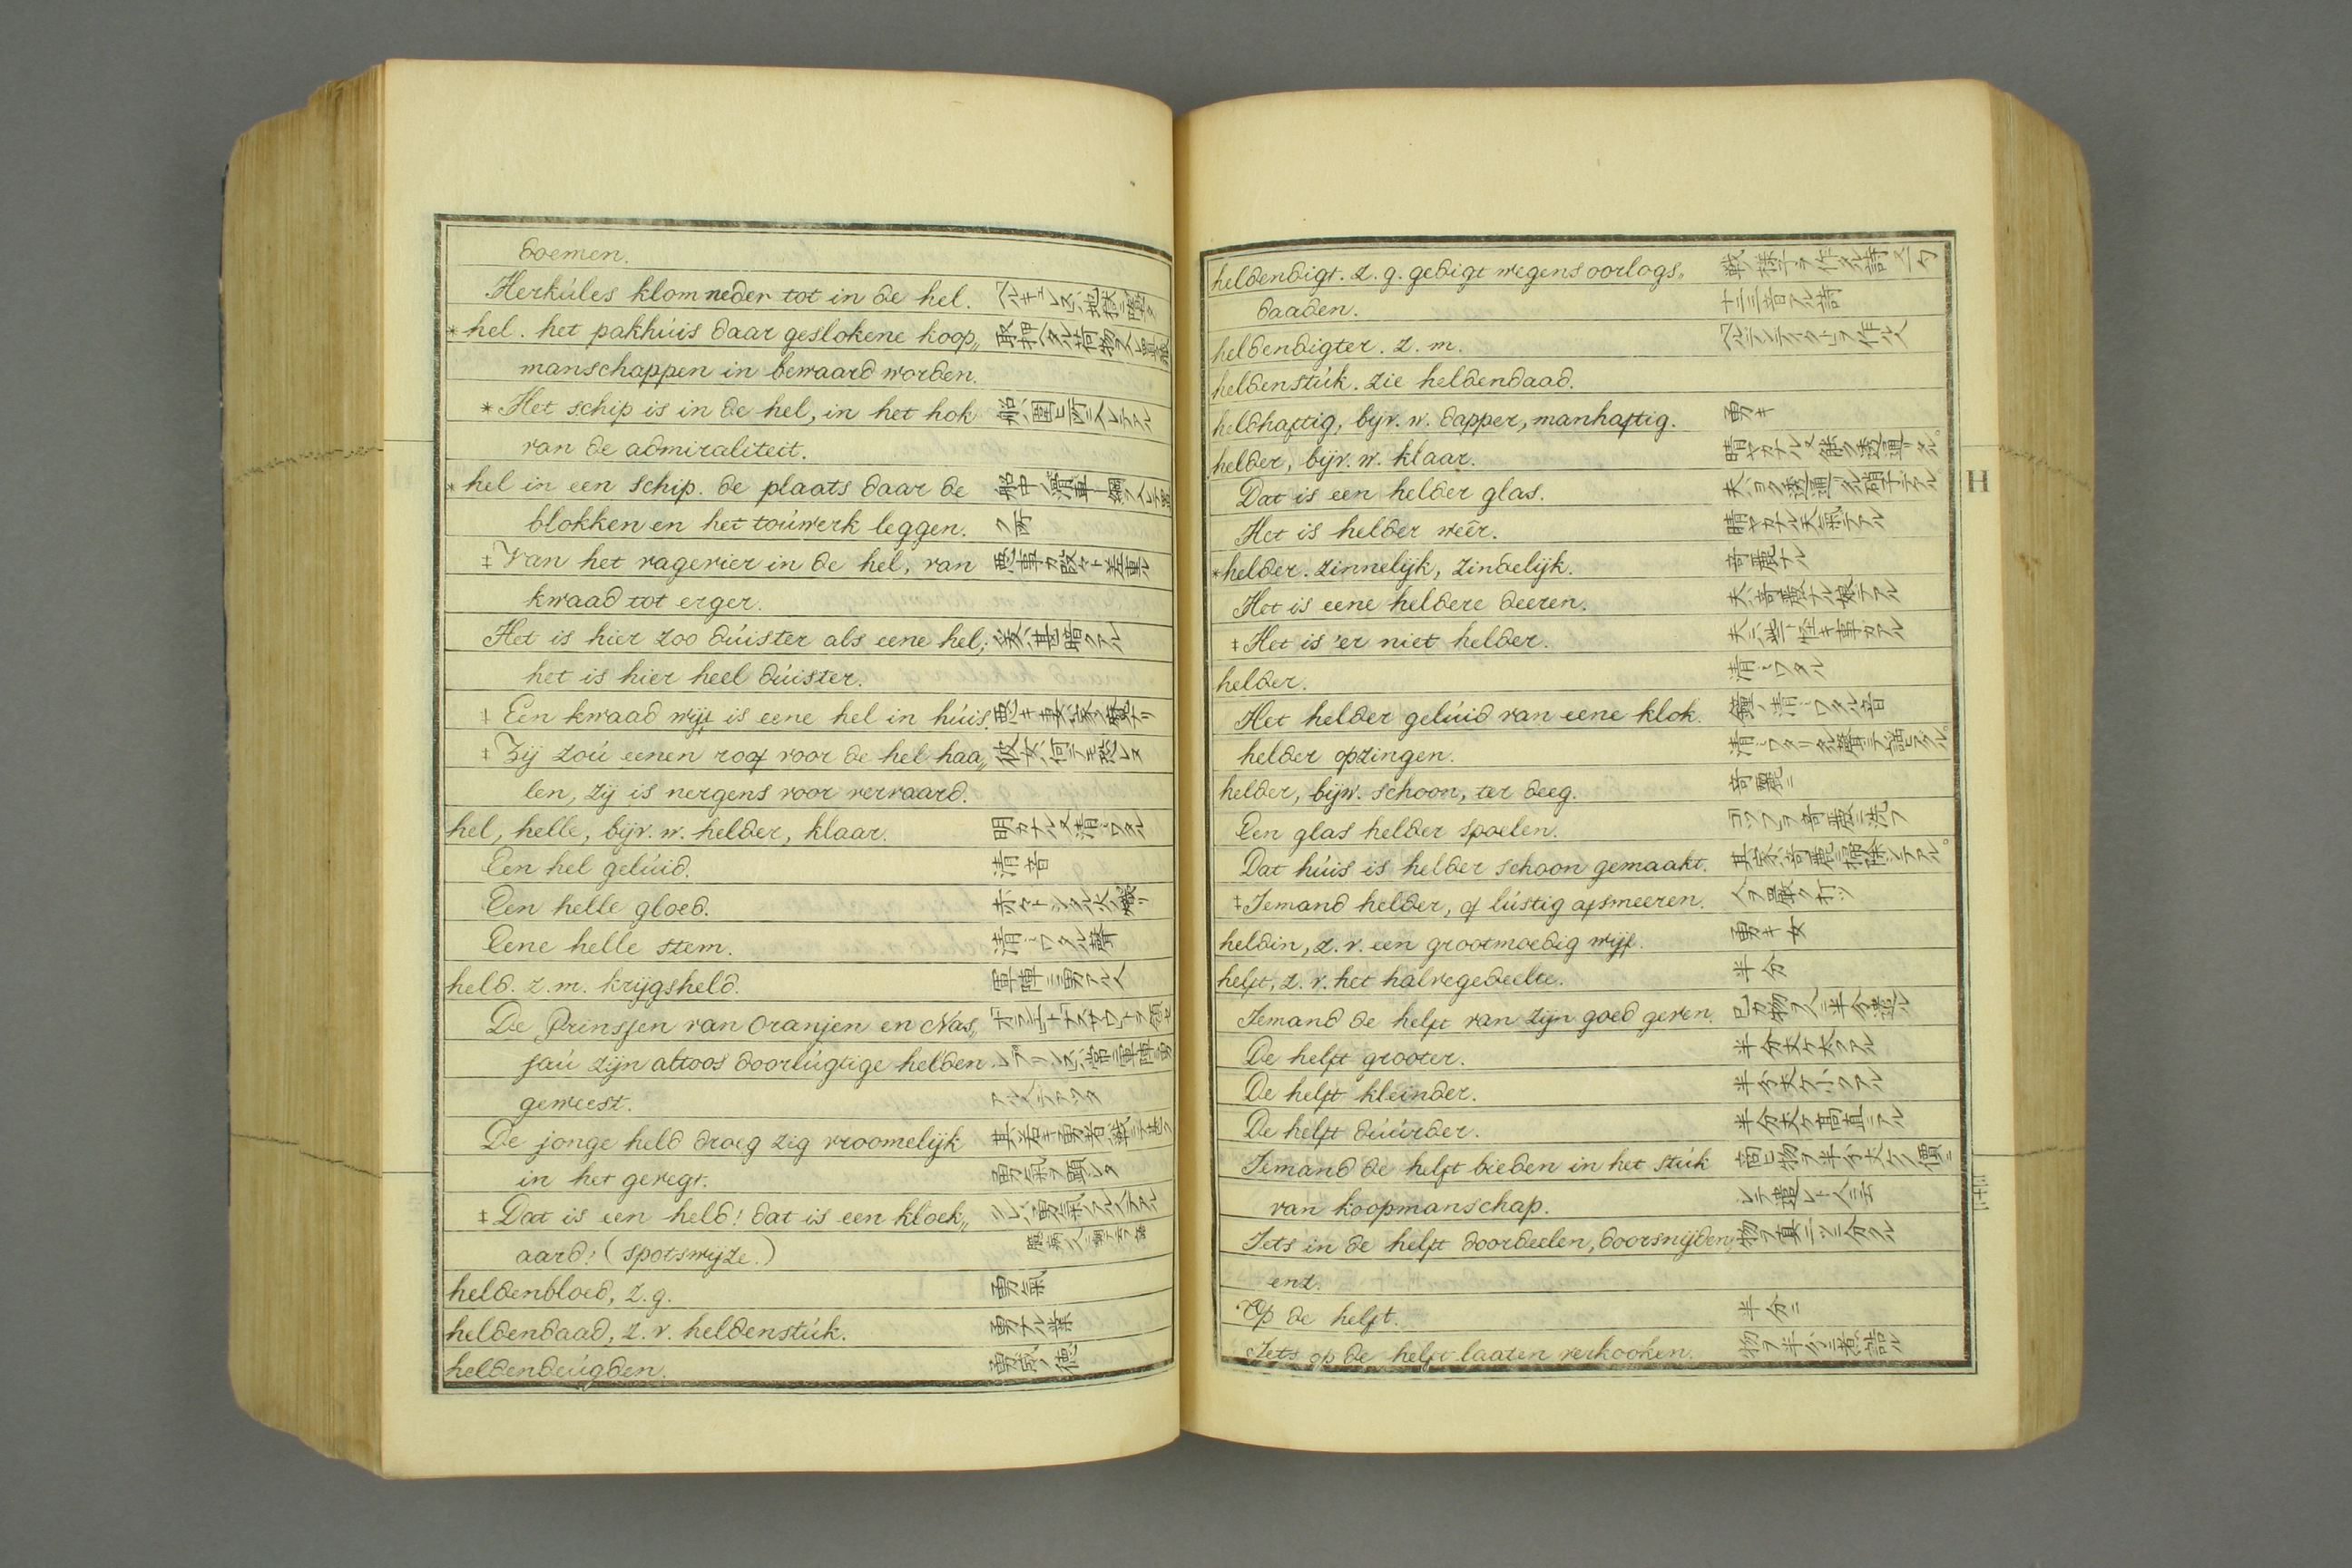 doemen.
Herkúles klom neder tot in de hel. ヘルキュレス、地獄ニ墮タ
*hel. het pakhúis daar geslokene koop„ 取押ヘタル荷物ヲ入レ置藏
manschappen in bewaard worden.
*Het schip is in de hel, in het hok 船、圍ヒ所ニ入レテアル
van de admiraliteit.
*hel in een schip. de plaats daar de 船中ノ滑車ト綱ヲ入レテ置
blokken en het toúwerk leggen. ク所
‡Van het vagevier in de hel, van 悪事カ段々ト差重ル
kwaad tot erger.
Het is hier zoo dúister als eene hel; 爰、甚暗クアル
het is hier heel dúister.
‡Een kwaad wijf is eene hel in húis. 悪キ妻、家ノ
‡Zij zoú eenen roof voor de hel haa„ 彼女、何ニモ恐レヌ
len, zij is nergens voor vervaard.
hel, helle, bijv. w. helder, klaar. 明カナル又清ミワタル
Een hel gelúid. 清音
Een helle gloed. 赤々トシタル火ノ熾リ
Eene helle stem. 清ミワタル聲
held. z.m. krijgsheld. 軍陣ニ勇アル人
De Prinssen van Oranjen en Nas„
saú zijn altoos doorlúgtige helden レプリンス、常ニ軍陣ニ勇
geweest. アル人テアツタ
De jonge held droeg zig vroomelijk 其若キ勇者、戰ニ甚タ
in het gevegt. 勇氣ヲ顕シタ
‡Dat is een held! dat is een kloek„ ソレ、勇氣アル人テアル
aard! (spotswijze.)
heldenbloed, z.g. 勇氣
heldendaad, z.v. heldenstúk. 勇ナル業
heldendeúgden. 勇氣ノ德
heldendigt. z.g. gedigt wegens oorlogs„
daaden. 十二三音アル詩
heldendigter. z.m. ヘルデンデイクトヲ作ル人
heldenstúk. zie heldendaad.
heldhaftig, bijv. w. dapper, manhaftig. 勇キ
helder, bijv. w. klaar. 晴ヤカナル又能ク透通リタル。
Dat is een helder glas. 夫、ヨク透通リタル硝子テアル。
Het is helder weêr. 晴ヤカナル天氣テアル
*helder. zinnelijk, zindelijk. 奇麗ナル
Het is eene heldere deeren. 夫、奇麗ナル娘テアル
‡Het is 'er niet helder. 夫ニ、些ト怪キ事カアル
helder. 清ミワタル
Het helder gelúid van eene klok. 鐘ノ清ミワタル音
helder opzingen. 清ミワタリタル聲ニテ謡ヒアクル。
helder, bijw. schoon, ter deeg. 奇麗ニ
Een glas helder spoelen. コツプヲ奇麗ニ洗フ
Dat húis is helder schoon gemaakt. 其家、奇麗ニ掃除シテアル。
‡Iemand helder, of lústig afsmeeren. 人ヲ嚴ク打ツ
heldin, z.v. een grootmoedig wijf. 勇キ女
helft, z.v. het halvegedeelte. 半分
Iemand de helft van zijn goed geven. 己カ物ヲ人ニ半分遣ル
De helft grooter. 半分丈ケ大クアル
De helft kleinder. 半分丈ケ小クアル
De helft dúúrder. 半分丈ケ高直ニアル
Iemand de helft bieden in het stúk 商ヒ物ヲ半分丈ケノ價ニ
van koopmanschap.
Iets in de helft doordeelen, doorsnijden, 物ヲ真二ツニ分クル
enz.
Op de helft. 半分ニ
Iets op de helft laaten verkooken. 物ヲ半分ニ煮詰ル
H